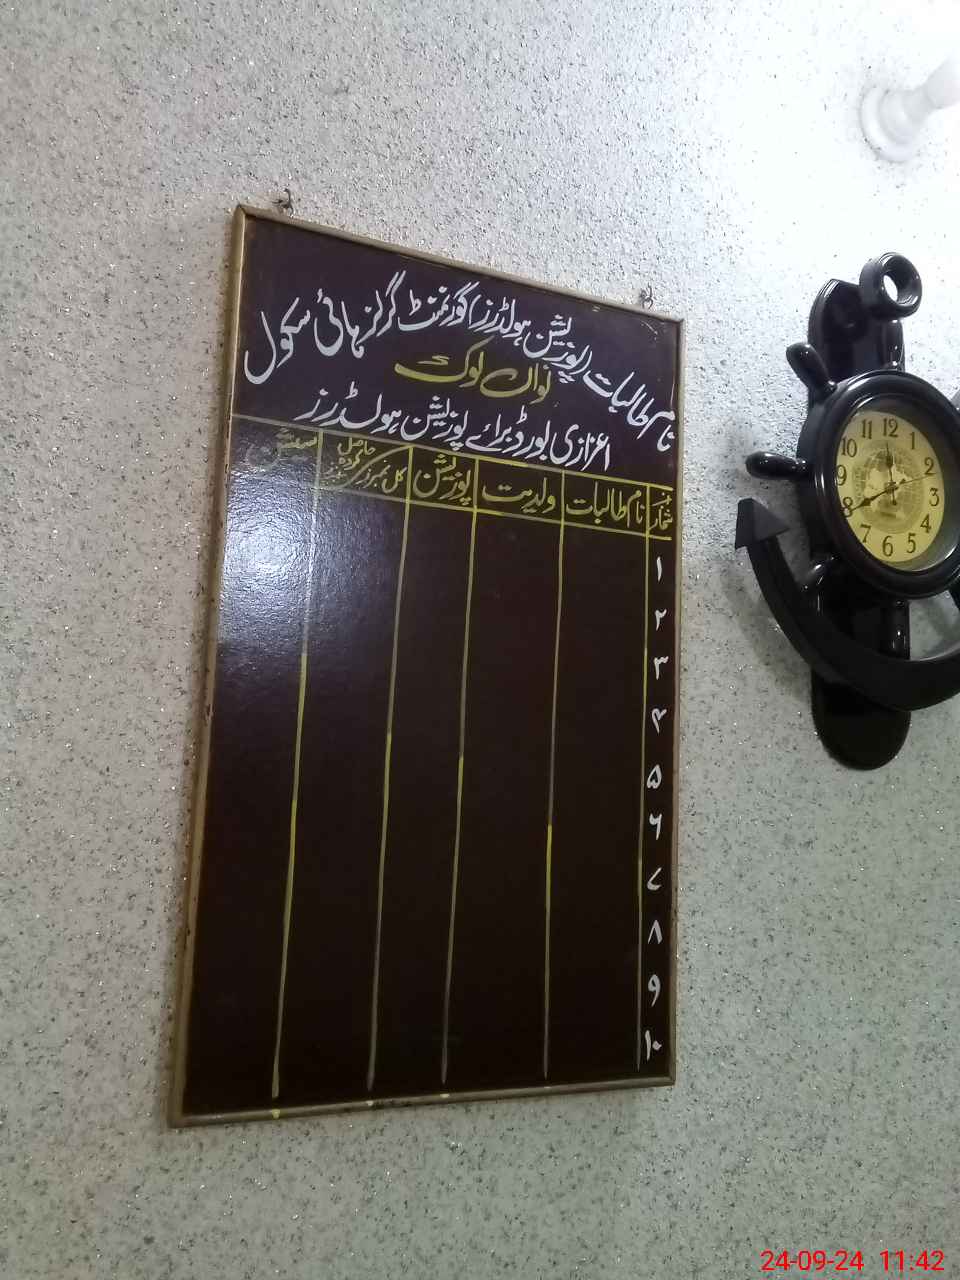 نام طالبات (پوزیشن ہولڈرز) گورنمنٹ گرلز ہائی سکول
نواں لوک
اعزازی بورڈ برائے پوزیشن ہولڈرز
نمبر شمار نام طالبات ولدیت پوزیشن کل نمبر حاصل کردہ نمبرز سیشن
۱
۲
۳
۴
۵
۶
۷
۸
۹
۱۰
12
1
2
3
4
5
6
7
8
9
10
11
24-09-24 11:42